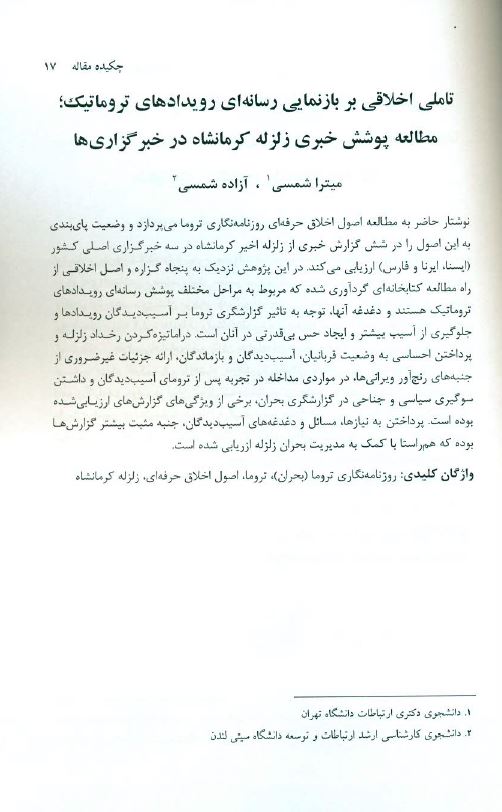 چکیده مقاله ۱۷
تاملی اخلاقی بر بازنمایی رسانه‌ای رویدادهای تروماتیک؛
مطالعه پوشش خبری زلزله کرمانشاه در خبرگزاری‌ها
میترا شمسی۱ ، آزاده شمسی۲
نوشتار حاضر به مطالعه اصول اخلاق حرفه‌ای روزنامه‌نگاری تروما می‌پردازد و وضعیت پای‌بندی
به این اصول را در شش گزارش خبری از زلزله اخیر کرمانشاه در سه خبرگزاری اصلی کشور
(ایسنا، ایرنا و فارس) ارزیابی می‌کند. در این پژوهش نزدیک به پنجاه گزاره و اصل اخلاقی از
راه مطالعه کتابخانه‌ای گردآوری شده که مربوط به مراحل مختلف پوشش رسانه‌ای رویدادهای
تروماتیک هستند و دغدغه آنها، توجه به تاثیر گزارشگری تروما بر آسیب‌دیدگان رویدادها و
جلوگیری از آسیب بیشتر و ایجاد حس بی‌قدرتی در آنان است. دراماتیزه‌کردن رخداد زلزله و
پرداختن احساسی به وضعیت قربانیان، آسیب‌دیدگان و بازماندگان، ارائه جزئیات غیرضروری از
جنبه‌های رنج‌آور ویرانی‌ها، در مواردی مداخله در تجربه پس از ترومای آسیب‌دیدگان و داشتن
سوگیری سیاسی و جناحی در گزارشگری بحران، برخی از ویژگی‌های گزارش‌های ارزیابی‌شده
بوده است. پرداختن به نیازها، مسائل و دغدغه‌های آسیب‌دیدگان، جنبه مثبت بیشتر گزارش‌ها
بوده که هم‌راستا با کمک به مدیریت بحران زلزله ارزیابی شده است.
واژگان کلیدی: روزنامه‌نگاری تروما (بحران)، تروما، اصول اخلاق حرفه‌ای، زلزله کرمانشاه
۱. دانشجوی دکتری ارتباطات دانشگاه تهران
۲. دانشجوی کارشناسی ارشد ارتباطات و توسعه دانشگاه سیتی لندن